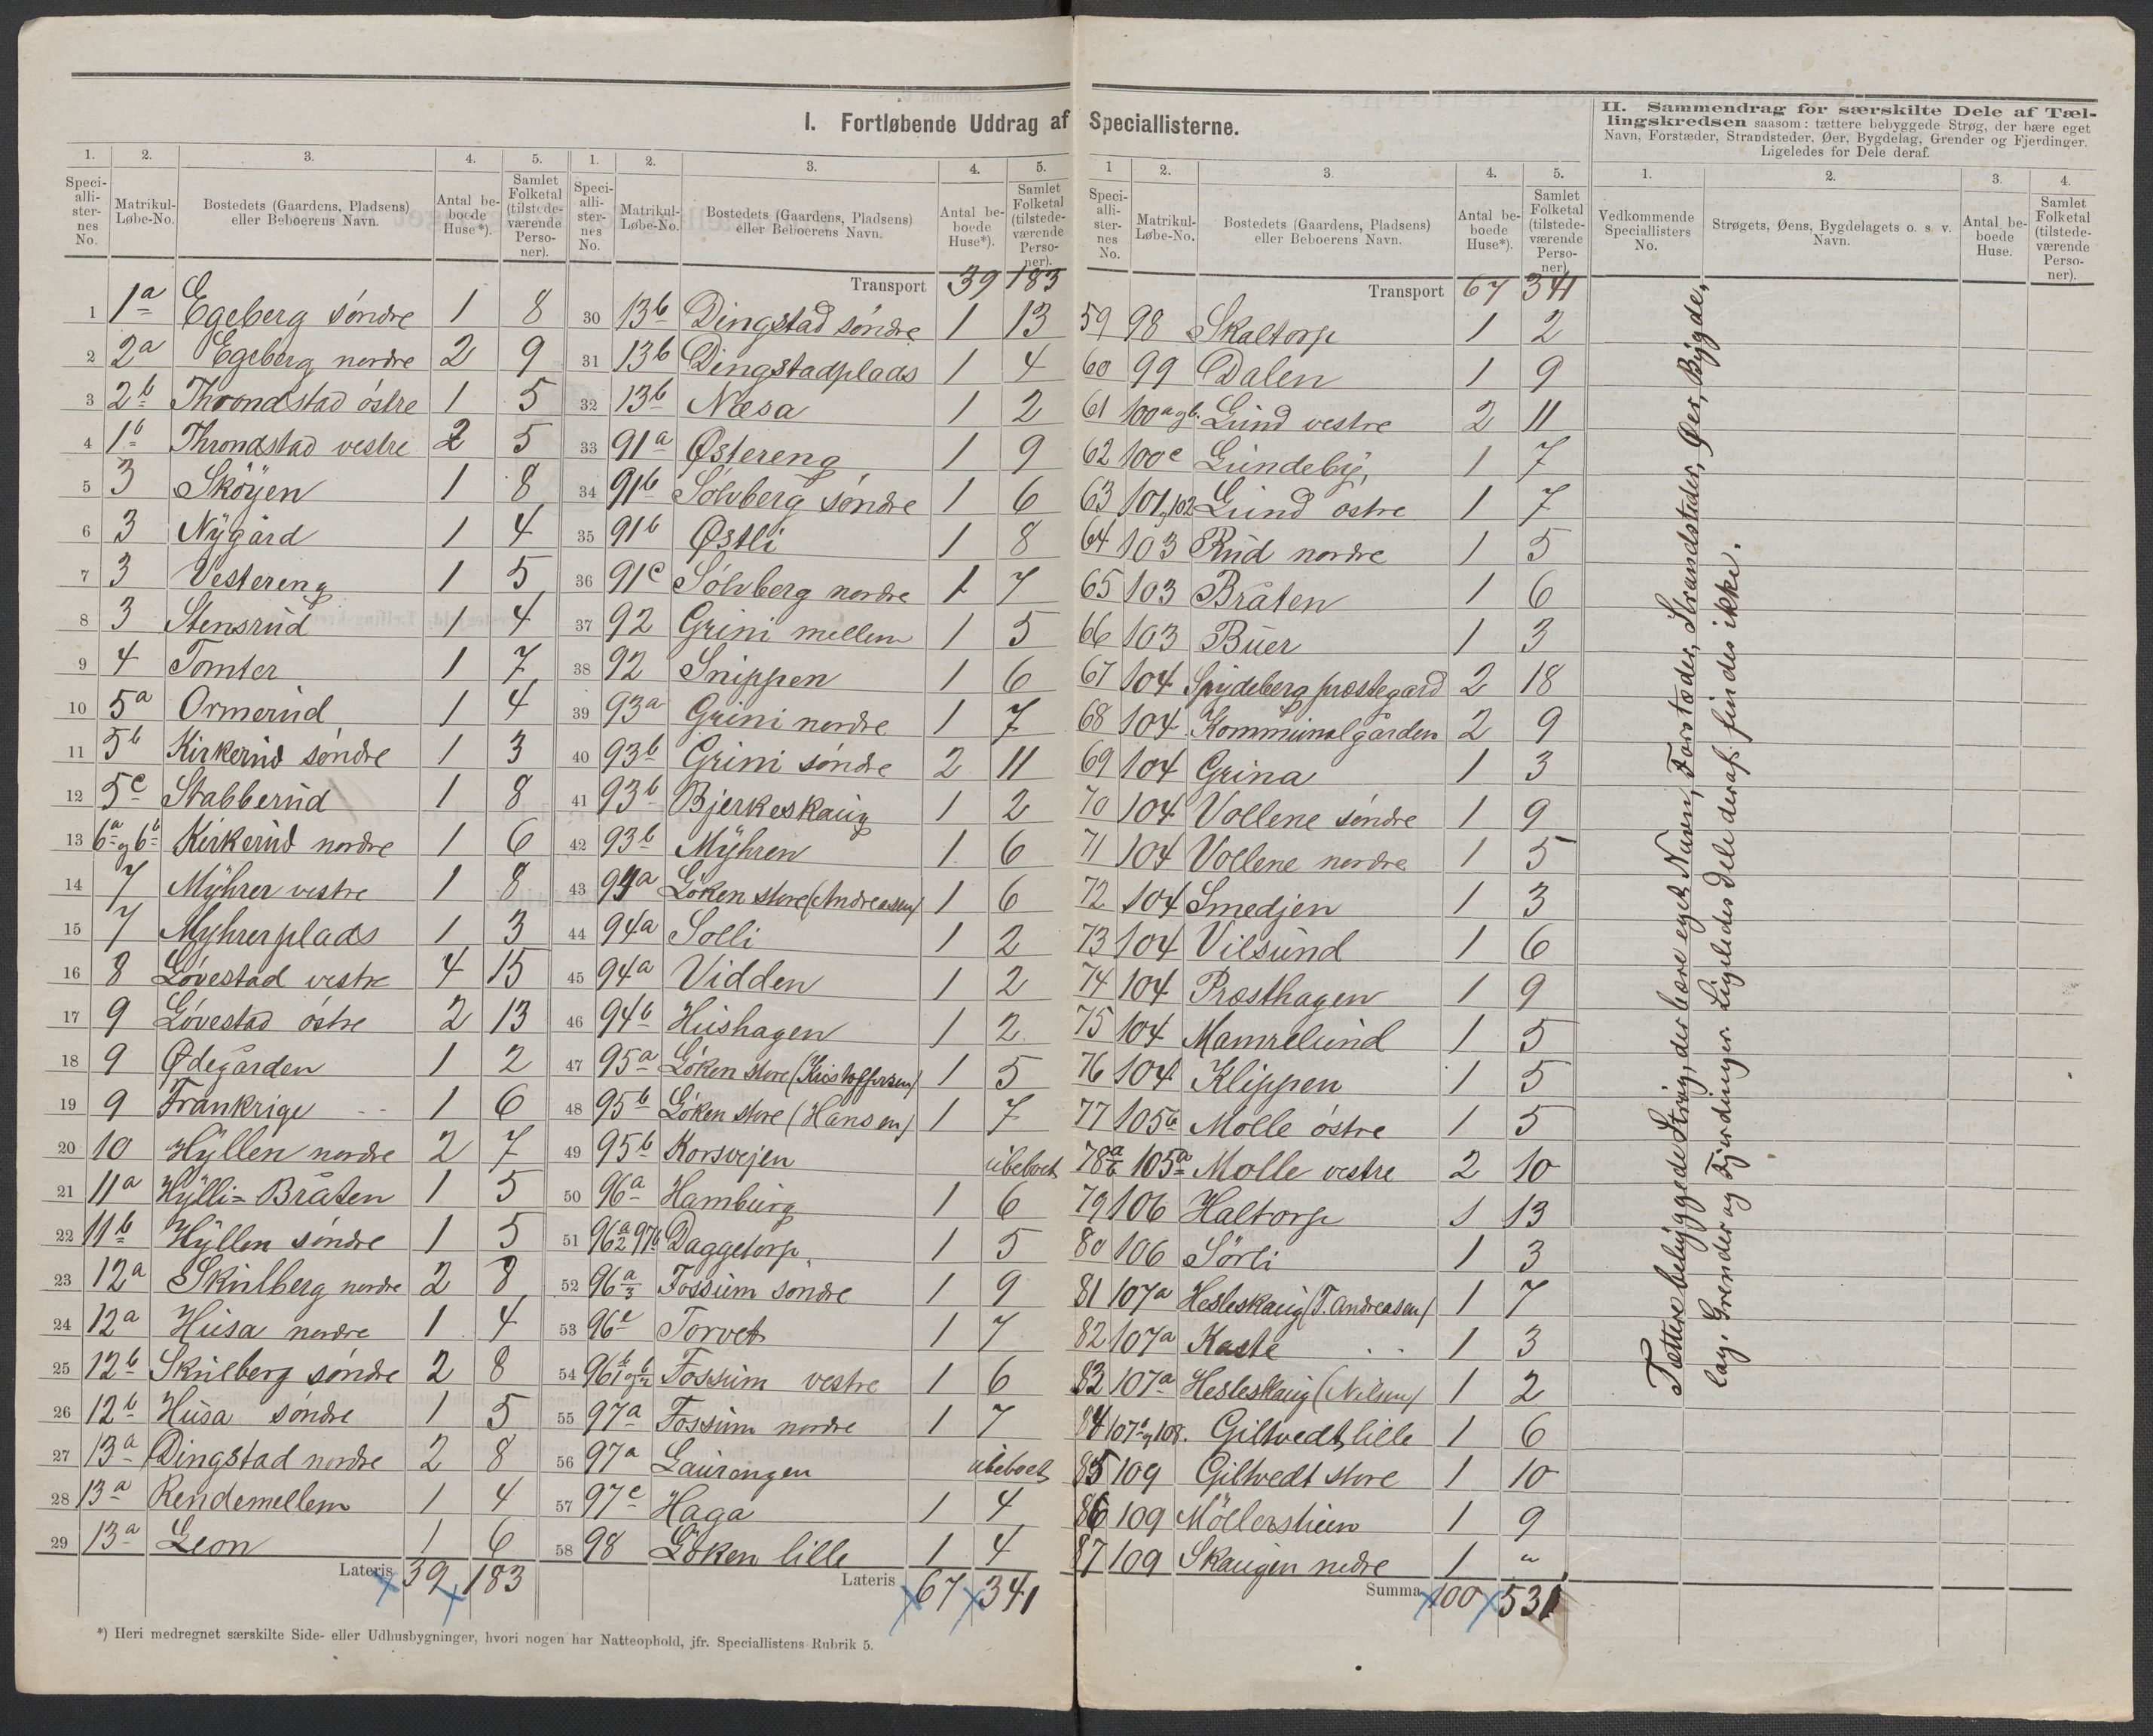 I. Fortløbende Uddrag af Speciallisterne.
1. 2. 3. 4. 5.
Speci-alli-ster-nes No. Matrikul-Løbe-No. Bostedets (Gaardens, Pladsens) eller Beboerens Navn. Antal be-boede Huse*). Samlet Folketal (tilstede-værende Perso-ner).
1 1a Egeberg söndre 1 8
2 2a Egeberg nordre 2 9
3 2b Throndstad östre 1 5
4 1b Throndstad vestre 2 5
5 3 Sköyen 1 8
6 3 Nygård 1 4
7 3 Vestereng 1 5
8 3 Stensrud 1 4
9 4 Tomter 1 7
10 5a Ormerud 1 4
11 5b Kirkerud söndre 1 3
12 5c Stabberud 1 8
13 6a og 6b Kirkerud nordre 1 6
14 7 Myhrer vestre 1 8
15 7 Myhrerplads 1 3
16 8 Lövestad vestre 4 15
17 9 Lövestad östre 2 13
18 9 Ødegården 1 2
19 9 Frankrige 1 6
20 10 Hyllen nordre 2 7
21 11a Hylli=Bråten 1 5
22 11b Hyllen söndre 1 5
23 12a Skulberg nordre 2 8
24 12a Husa nordre 1 4
25 12b Skulberg söndre 2 8
26 12b Husa söndre 1 5
27 13a Dingstad nordre 2 8
28 13a Rendemellem 1 4
29 13a Leon 1 6
Lateris 39 183
*) Heri medregnet særskilte Side- eller Udhusbygninger, hvori nogen har Natteophold, jfr. Speciallistens Rubrik 5.
1. 2. 3. 4. 5.
Speci-alli-ster-nes No. Matrikul-Løbe-No. Bostedets (Gaardens, Pladsens) eller Beboerens Navn. Antal be-boede Huse*). Samlet Folketal (tilstede-værende Perso-ner).
Transport 39 183
30 13b Dingstad söndre 1 13
31 13b Dingstadplads 1 4
32 13b Næsa 1 2
33 91a Østereng 1 9
34 91b Solvberg söndre 1 6
35 91b Østli 1 8
36 91c Solvberg nordre 1 7
37 92 Grini mellem 1 5
38 92 Snippen 1 6
39 93a Grini nordre 1 7
40 93b Grini söndre 2 11
41 93b Bjerkeskaug 1 2
42 93b Myhren 1 6
43 94a Löken store (Andreasen) 1 6
44 94a Solli 1 2
45 94a Vidden 1 2
46 94b Hushagen 1 2
47 95a Löken store (Kristoffersen) 1 5
48 95b Löken store (Hansen) 1 7
49 95b Korsvejen ubeboet
50 96a Hamburg 1 6
51 96a2 97b Daggetorp 1 5
52 96a3 Fossum sondre 1 9
53 96c Torvet 1 7
54 96b1 og b2 Fossum vestre 1 6
55 97a Fossum nordre 1 7
56 97a Laurengen ubeboet
57 97c Haga 1 4
58 98 Löken lille 1 4
Lateris 67 341
1 2. 3. 4. 5.
Speci-alli-ster-nes No. Matrikul-Løbe-No. Bostedets (Gaardens, Pladsens) eller Beboerens Navn. Antal be-boede Huse*). Samlet Folketal (tilstede-værende Perso-ner).
Transport 67 341
59 98 Skaltorp 1 2
60 99 Dalen 1 9
61 100a og b. Lund vestre 2 11
62 100c Lundeby 1 7
63 101, 102 Lund ostre 1 7
64 103 Rud nordre 1 5
65 103 Bråten 1 6
66 103 Buer 1 3
67 104 Spydeberg præstegård 2 18
68 104 Kommunalgården 2 9
69 104 Grina 1 3
70 104 Vollene söndre 1 9
71 104 Vollene nordre 1 5
72 104 Smedjen 1 3
73 104 Vilsund 1 6
74 104 Præsthagen 1 9
75 104 Mamrelund 1 5
76 104 Klippen 1 5
77 105b Molle östre 1 5
78 a b 105a Molle vestre 2 10
79 106 Haltorp 1 13
80 106 Sörli 1 3
81 107a Hesleskaug (T. Andreasen) 1 7
82 107a Kaste 1 3
83 107a Hesleskaug (Nilsen) 1 2
84 107b og 108. Giltvedt lille 1 6
85 109 Giltvedt store 1 10
86 109 Möllershuen 1 9
87 109 Skaugen nedre 1 "
Summa 100 531
II. Sammendrag for særskilte Dele af Tæl-
lingskredsen saasom: tættere bebyggede Strøg, der bære eget
Navn, Forstæder, Strandsteder, Øer, Bygdelag, Grender og Fjerdinger.
Ligeledes for Dele deraf.
1. 2. 3. 4.
Vedkommende Speciallisters No. Strøgets, Øens, Bygdelagets o. s. v. Navn. Antal be-boede Huse. Samlet Folketal (tilstede-værende Perso-ner).
Tættere bebyggede Strøg, der bære eget Navn, Forstæder, Strandsteder, Øer, Bygde,
lag, Grender og Fjerdinger. Ligeledes Dele deraf: findes ikke.